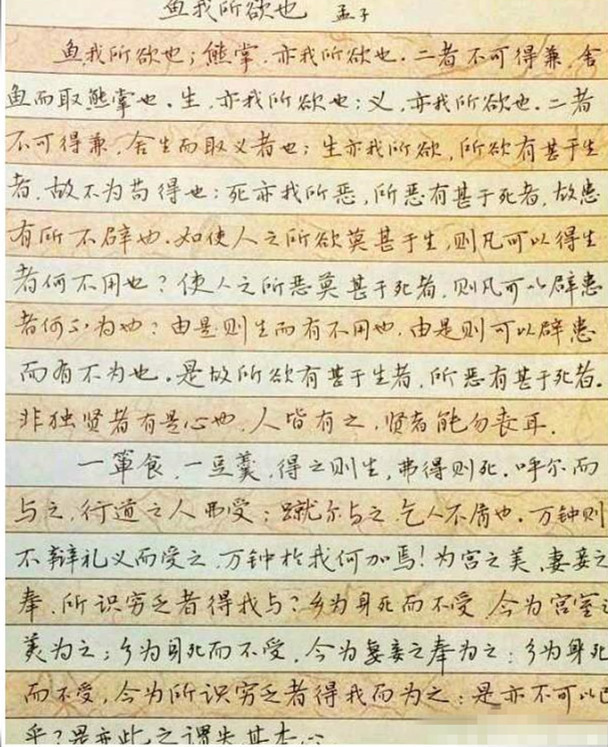 鱼我所欲也 孟子
鱼我所欲也；熊掌，亦我所欲也．二者不可得兼，舍
鱼而取熊掌也．生，亦我所欲也；义，亦我所欲也．二者
不可得兼，舍生而取义者也；生亦我所欲，所欲有甚于生
者，故不为苟得也；死亦我所恶，所恶有甚于死者，故患
有所不辟也．如使人之所欲莫甚于生，则凡可以得生
者何不用也？使人之所恶莫甚于死者，则凡可以辟患
者何不为也？由是则生而有不用也，由是则可以辟患
而有不为也．是故所欲有甚于生者，所恶有甚于死者．
非独贤者有是心也，人皆有之，贤者能勿丧耳．
一箪食，一豆羹，得之则生，弗得则死．呼尔而
与之，行道之人而受；蹴尔与之，乞人不屑也．万钟则
不辩礼义而受之，万钟於我何加焉！为宫之美，妻妾之
奉，所识穷乏者得我与？乡为身死而不受，今为宫室之
美为之；乡为身死而不受，今为妻妾之奉为之；乡为身死
而不受，今为所识穷乏者得我而为之：是亦不可以已
乎？是亦此之谓失其本心